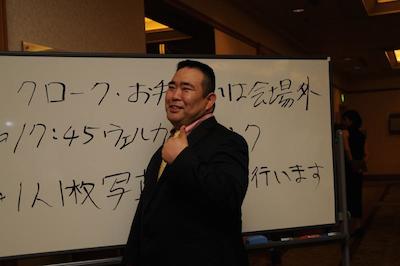 クローク・お手 いは会場外
17:45ウェルカ ク
1人1枚写 行います